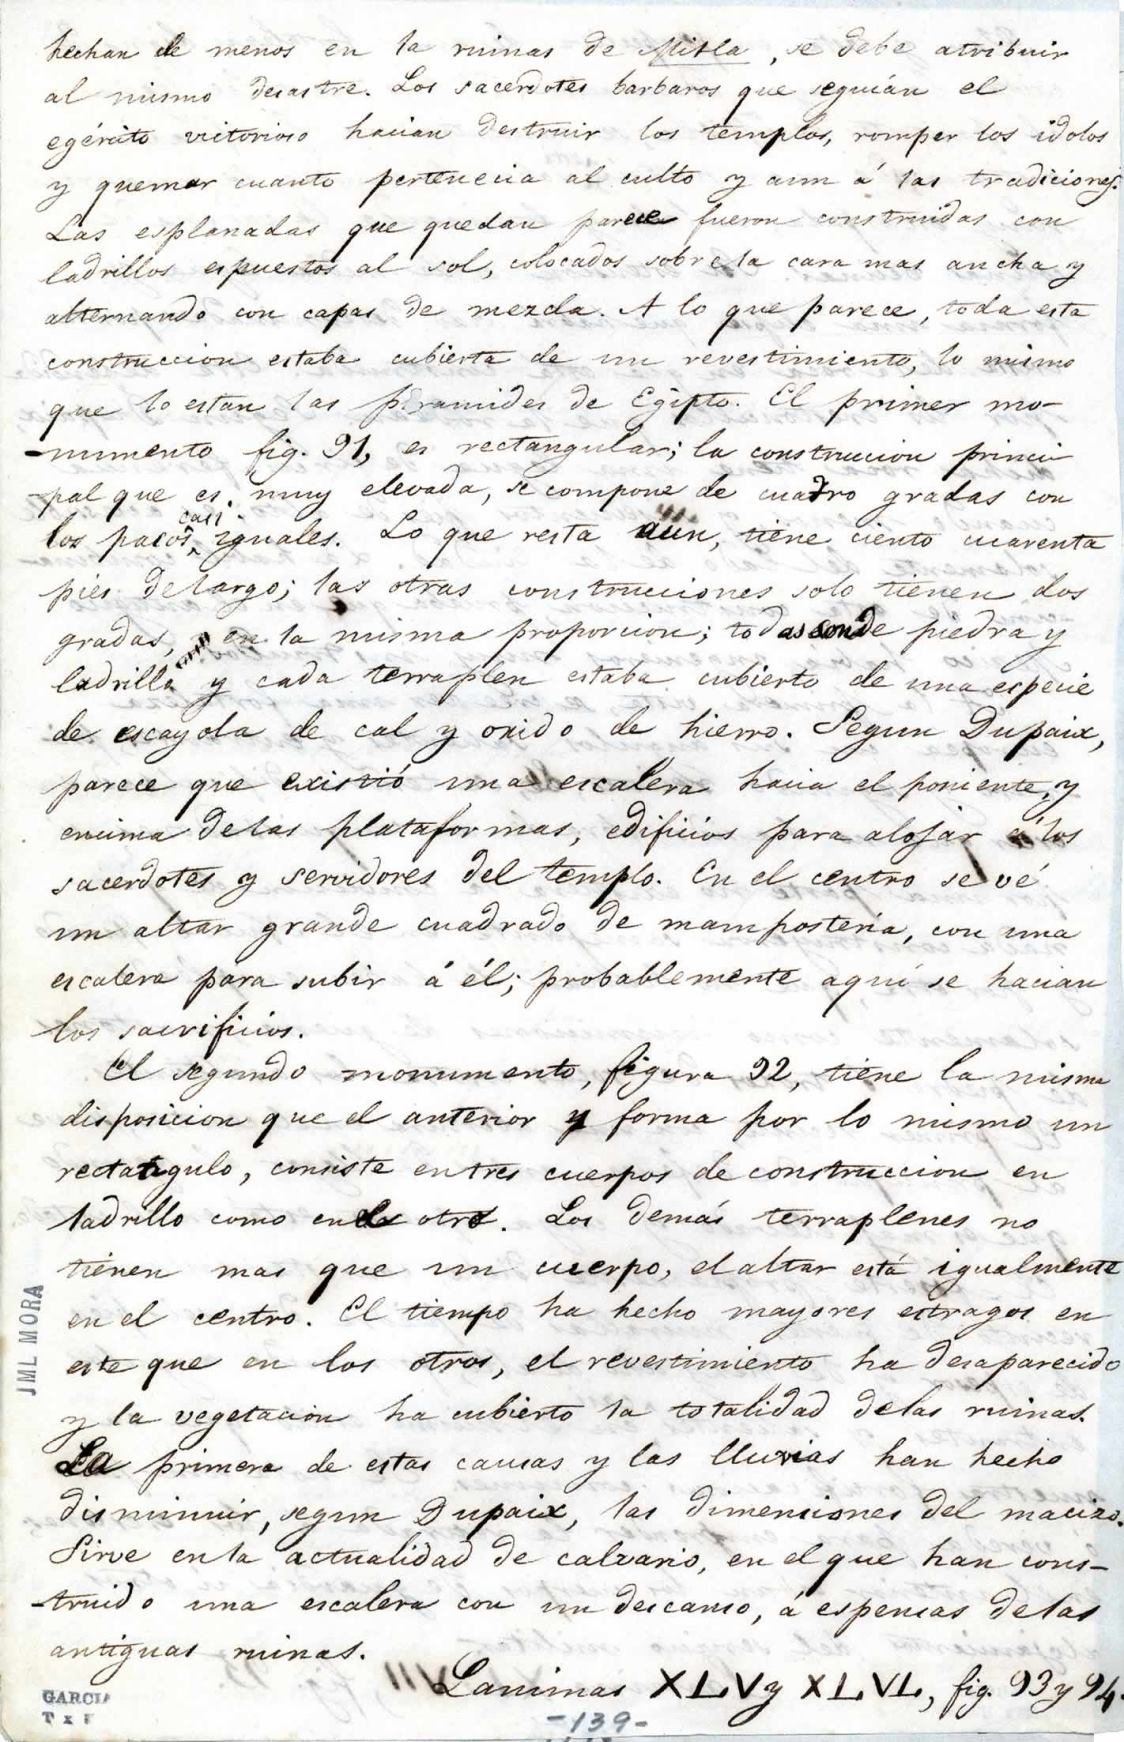 hechan de menos en la ruinas de Mitla, se debe atribuir
al mismo desastre. Los sacerdotes barbaros que seguián el
egército victorioso hacian destruir los templos, romper los idolos
y quemar cuanto pertenecia al culto y aun á las tradiciones.
Las esplanadas que quedan parece fueron construidas con
ladrillos espuestos al sol, colocados sobre la cara mas ancha y
alternando con capas de mezcla. A lo que parece, toda esta
construccion estaba cubierta de un revestimiento, lo mismo
que lo estan las piramides de Egipto. El primer mo-
-numento fig. 91, es rectangular; la construccion princi-
pal que es muy elevada, se compone de cuatro gradas con
los pasos casi iguales. Lo que resta aun, tiene ciento cuarenta
piés de largo; las otras construcciones solo tienen dos
gradas, en la misma proporcion; todas son de piedra y
ladrillo y cada terraplen estaba cubierto de una especie
de escayola de cal y oxido de hierro. Segun Dupaix,
parece que existió una escalera hacia el poniente, y
encima de las plataformas, edificios para alojar á los
sacerdotes y servidores del templo. En el centro se vé
un altar grande cuadrado de mampostería, con una
escalera para subir á él; probablemente aquí se hacian
los sacrificios.
El segundo monumento, figura 92, tiene la misma
disposicion que el anterior y forma por lo mismo un
rectatgulo, consiste en tres cuerpos de construccion en
ladrillo como en el otro. Los demás terraplenes no
tienen mas que un cuerpo, el altar está igualmente
en el centro. El tiempo ha hecho mayores estragos en
este que en los otros, el revestimiento ha desaparecido
y la vegetacion ha cubierto la totalidad de las ruinas.
La primera de estas causas y las lluvias han hecho
disminuir, segun Dupaix, las dimensiones del macizo.
Sirve en la actualidad de calvario, en el que han cons-
-truido una escalera con un descanso, á espensas de las
antiguas ruinas.
Laminas XLV y XLVI, fig. 93 y 94.
-139-
JML MORA
GARCIA